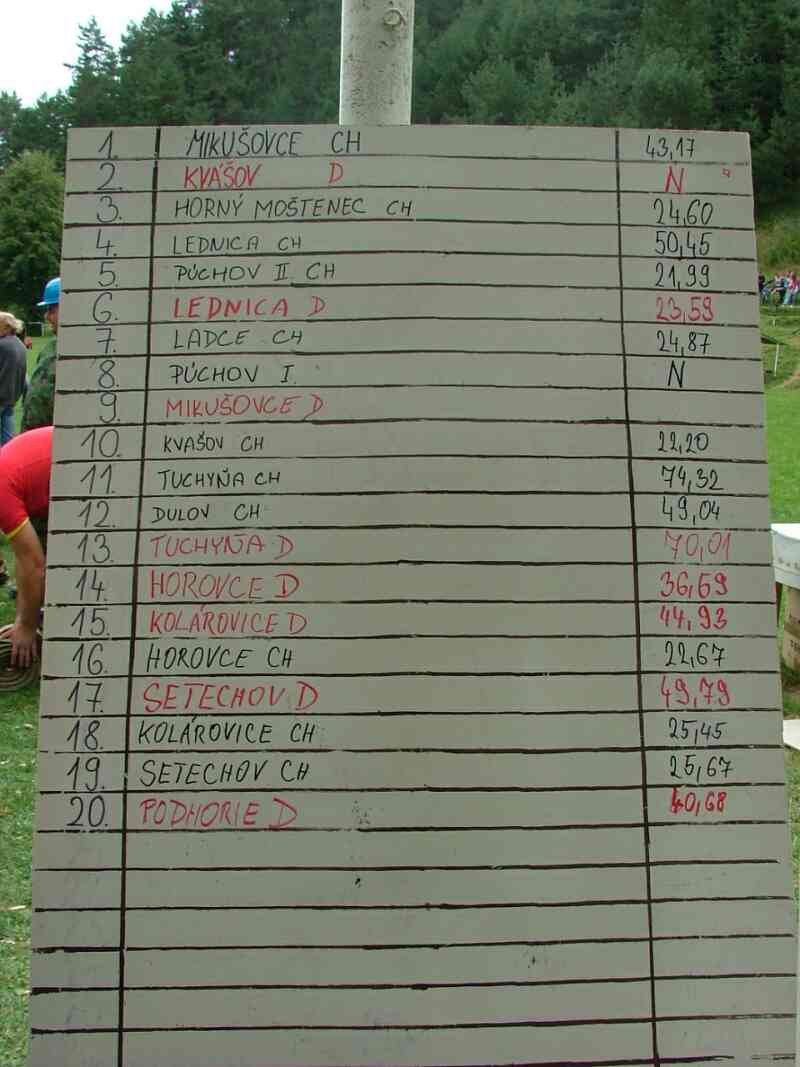 1. MIKUŠOVCE CH 43,17
2. KVÁŠOV D N
3. HORNÝ MOŠTENEC CH 24,60
4. LEDNICA CH 50,45
5. PÚCHOV II. CH 21,99
6. LEDNICA D 23,59
7. LADCE CH 24,87
8. PÚCHOV I. N
9. MIKUŠOVCE D
10. KVAŠOV CH 22,20
11. TUCHYŇA CH 74,32
12. DULOV CH 49,04
13. TUCHYŇA D 70,01
14. HOROVCE D 36,69
15. KOLÁROVICE D 44,93
16. HOROVCE CH 22,67
17. SETECHOV D 49,79
18. KOLÁROVICE CH 25,45
19. SETECHOV CH 25,67
20. PODHORIE D 40,68